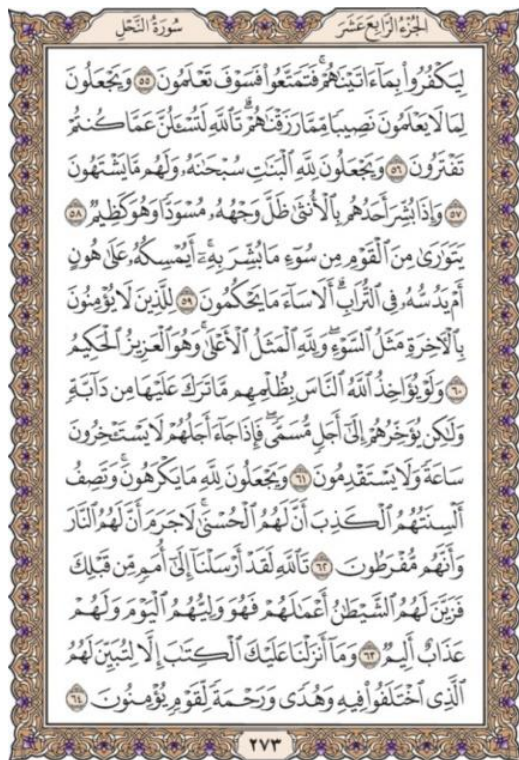 الجُزْءُ الرَّابِعَ عَشَرَ
سُورَةُ النَّحْلِ
لِيَكْفُرُوا۟ بِمَآ ءَاتَيْنَٰهُمْ ۚ فَتَمَتَّعُوا۟ فَسَوْفَ تَعْلَمُونَ ٥٥ وَيَجْعَلُونَ
لِمَا لَا يَعْلَمُونَ نَصِيبًا مِّمَّا رَزَقْنَٰهُمْ ۗ تَٱللَّهِ لَتُسْـَٔلُنَّ عَمَّا كُنتُمْ
تَفْتَرُونَ ٥٦ وَيَجْعَلُونَ لِلَّهِ ٱلْبَنَٰتِ سُبْحَٰنَهُۥ وَلَهُم مَّا يَشْتَهُونَ
٥٧ وَإِذَا بُشِّرَ أَحَدُهُم بِٱلْأُنثَىٰ ظَلَّ وَجْهُهُۥ مُسْوَدًّا وَهُوَ كَظِيمٌ ٥٨
يَتَوَٰرَىٰ مِنَ ٱلْقَوْمِ مِن سُوٓءِ مَا بُشِّرَ بِهِۦٓ ۚ أَيُمْسِكُهُۥ عَلَىٰ هُونٍ
أَمْ يَدُسُّهُۥ فِى ٱلتُّرَابِ ۗ أَلَا سَآءَ مَا يَحْكُمُونَ ٥٩ لِلَّذِينَ لَا يُؤْمِنُونَ
بِٱلْـَٔاخِرَةِ مَثَلُ ٱلسَّوْءِ ۖ وَلِلَّهِ ٱلْمَثَلُ ٱلْأَعْلَىٰ ۚ وَهُوَ ٱلْعَزِيزُ ٱلْحَكِيمُ
٦٠ وَلَوْ يُؤَاخِذُ ٱللَّهُ ٱلنَّاسَ بِظُلْمِهِم مَّا تَرَكَ عَلَيْهَا مِن دَآبَّةٍ
وَلَٰكِن يُؤَخِّرُهُمْ إِلَىٰٓ أَجَلٍ مُّسَمًّى ۖ فَإِذَا جَآءَ أَجَلُهُمْ لَا يَسْتَـْٔخِرُونَ
سَاعَةً وَلَا يَسْتَقْدِمُونَ ٦١ وَيَجْعَلُونَ لِلَّهِ مَا يَكْرَهُونَ ۚ وَتَصِفُ
أَلْسِنَتُهُمُ ٱلْكَذِبَ أَنَّ لَهُمُ ٱلْحُسْنَىٰ ۖ لَا جَرَمَ أَنَّ لَهُمُ ٱلنَّارَ
وَأَنَّهُم مُّفْرَطُونَ ٦٢ تَٱللَّهِ لَقَدْ أَرْسَلْنَآ إِلَىٰٓ أُمَمٍ مِّن قَبْلِكَ
فَزَيَّنَ لَهُمُ ٱلشَّيْطَٰنُ أَعْمَٰلَهُمْ فَهُوَ وَلِيُّهُمُ ٱلْيَوْمَ وَلَهُمْ
عَذَابٌ أَلِيمٌ ٦٣ وَمَآ أَنزَلْنَا عَلَيْكَ ٱلْكِتَٰبَ إِلَّا لِتُبَيِّنَ لَهُمُ
ٱلَّذِى ٱخْتَلَفُوا۟ فِيهِ ۙ وَهُدًى وَرَحْمَةً لِّقَوْمٍ يُؤْمِنُونَ ٦٤
٢٧٣